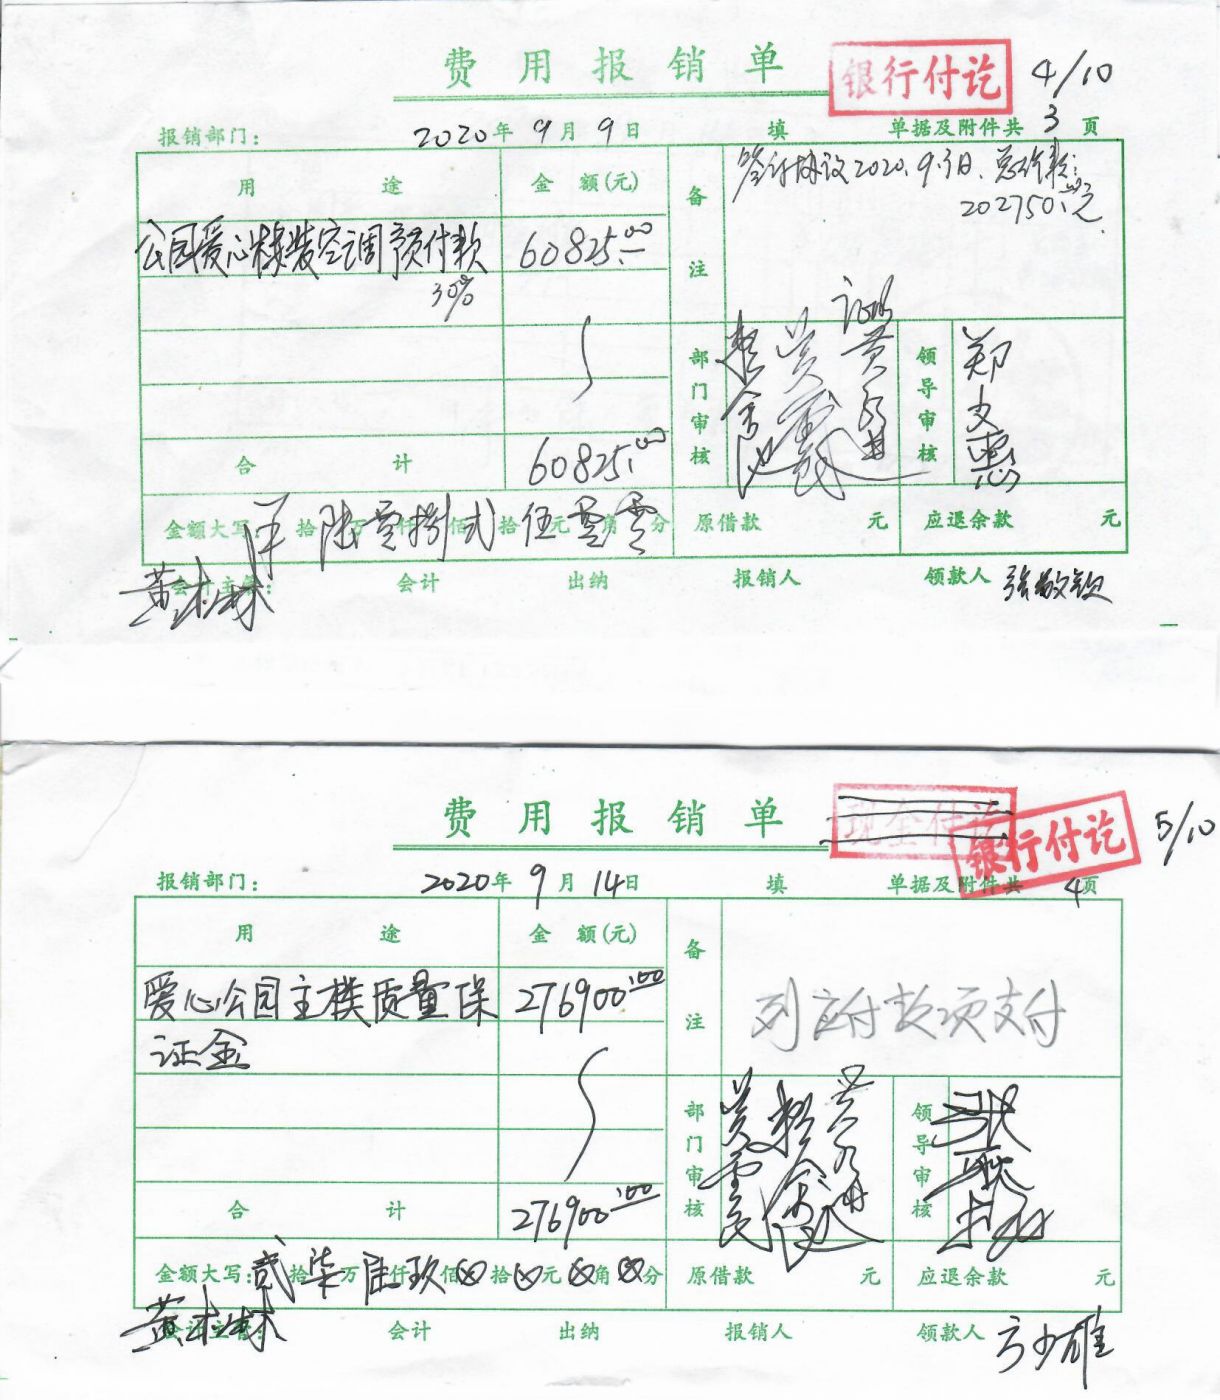 费用报销单
银行付讫
4/10
报销部门：
2020年9月9日
填
单据及附件共3页
用途
金额(元)
备注
签订协议2020.9.3日、总价款：
202750.00元
公园爱心楼装空调预付款
30%
60825.00
合计
60825.00
部门审核
证明
领导审核
郑文惠
金额大写：洋陆拾零万捌仟贰佰伍拾零元零角分
原借款 元
应退余款 元
会计主管：
黄木林
会计
出纳
报销人
领款人 张敬钦
费用报销单
现金付讫
银行付讫
5/10
报销部门：
2020年9月14日
填
单据及附件共4页
用途
金额(元)
备注
爱心公园主楼质量保
证金
276900.00
列应付款项支付
合计
276900.00
部门审核
领导审核
金额大写：贰拾柒万陆仟玖佰0拾0元0角0分
原借款 元
应退余款 元
会计主管：
黄木林
会计
出纳
报销人
领款人 方少雄